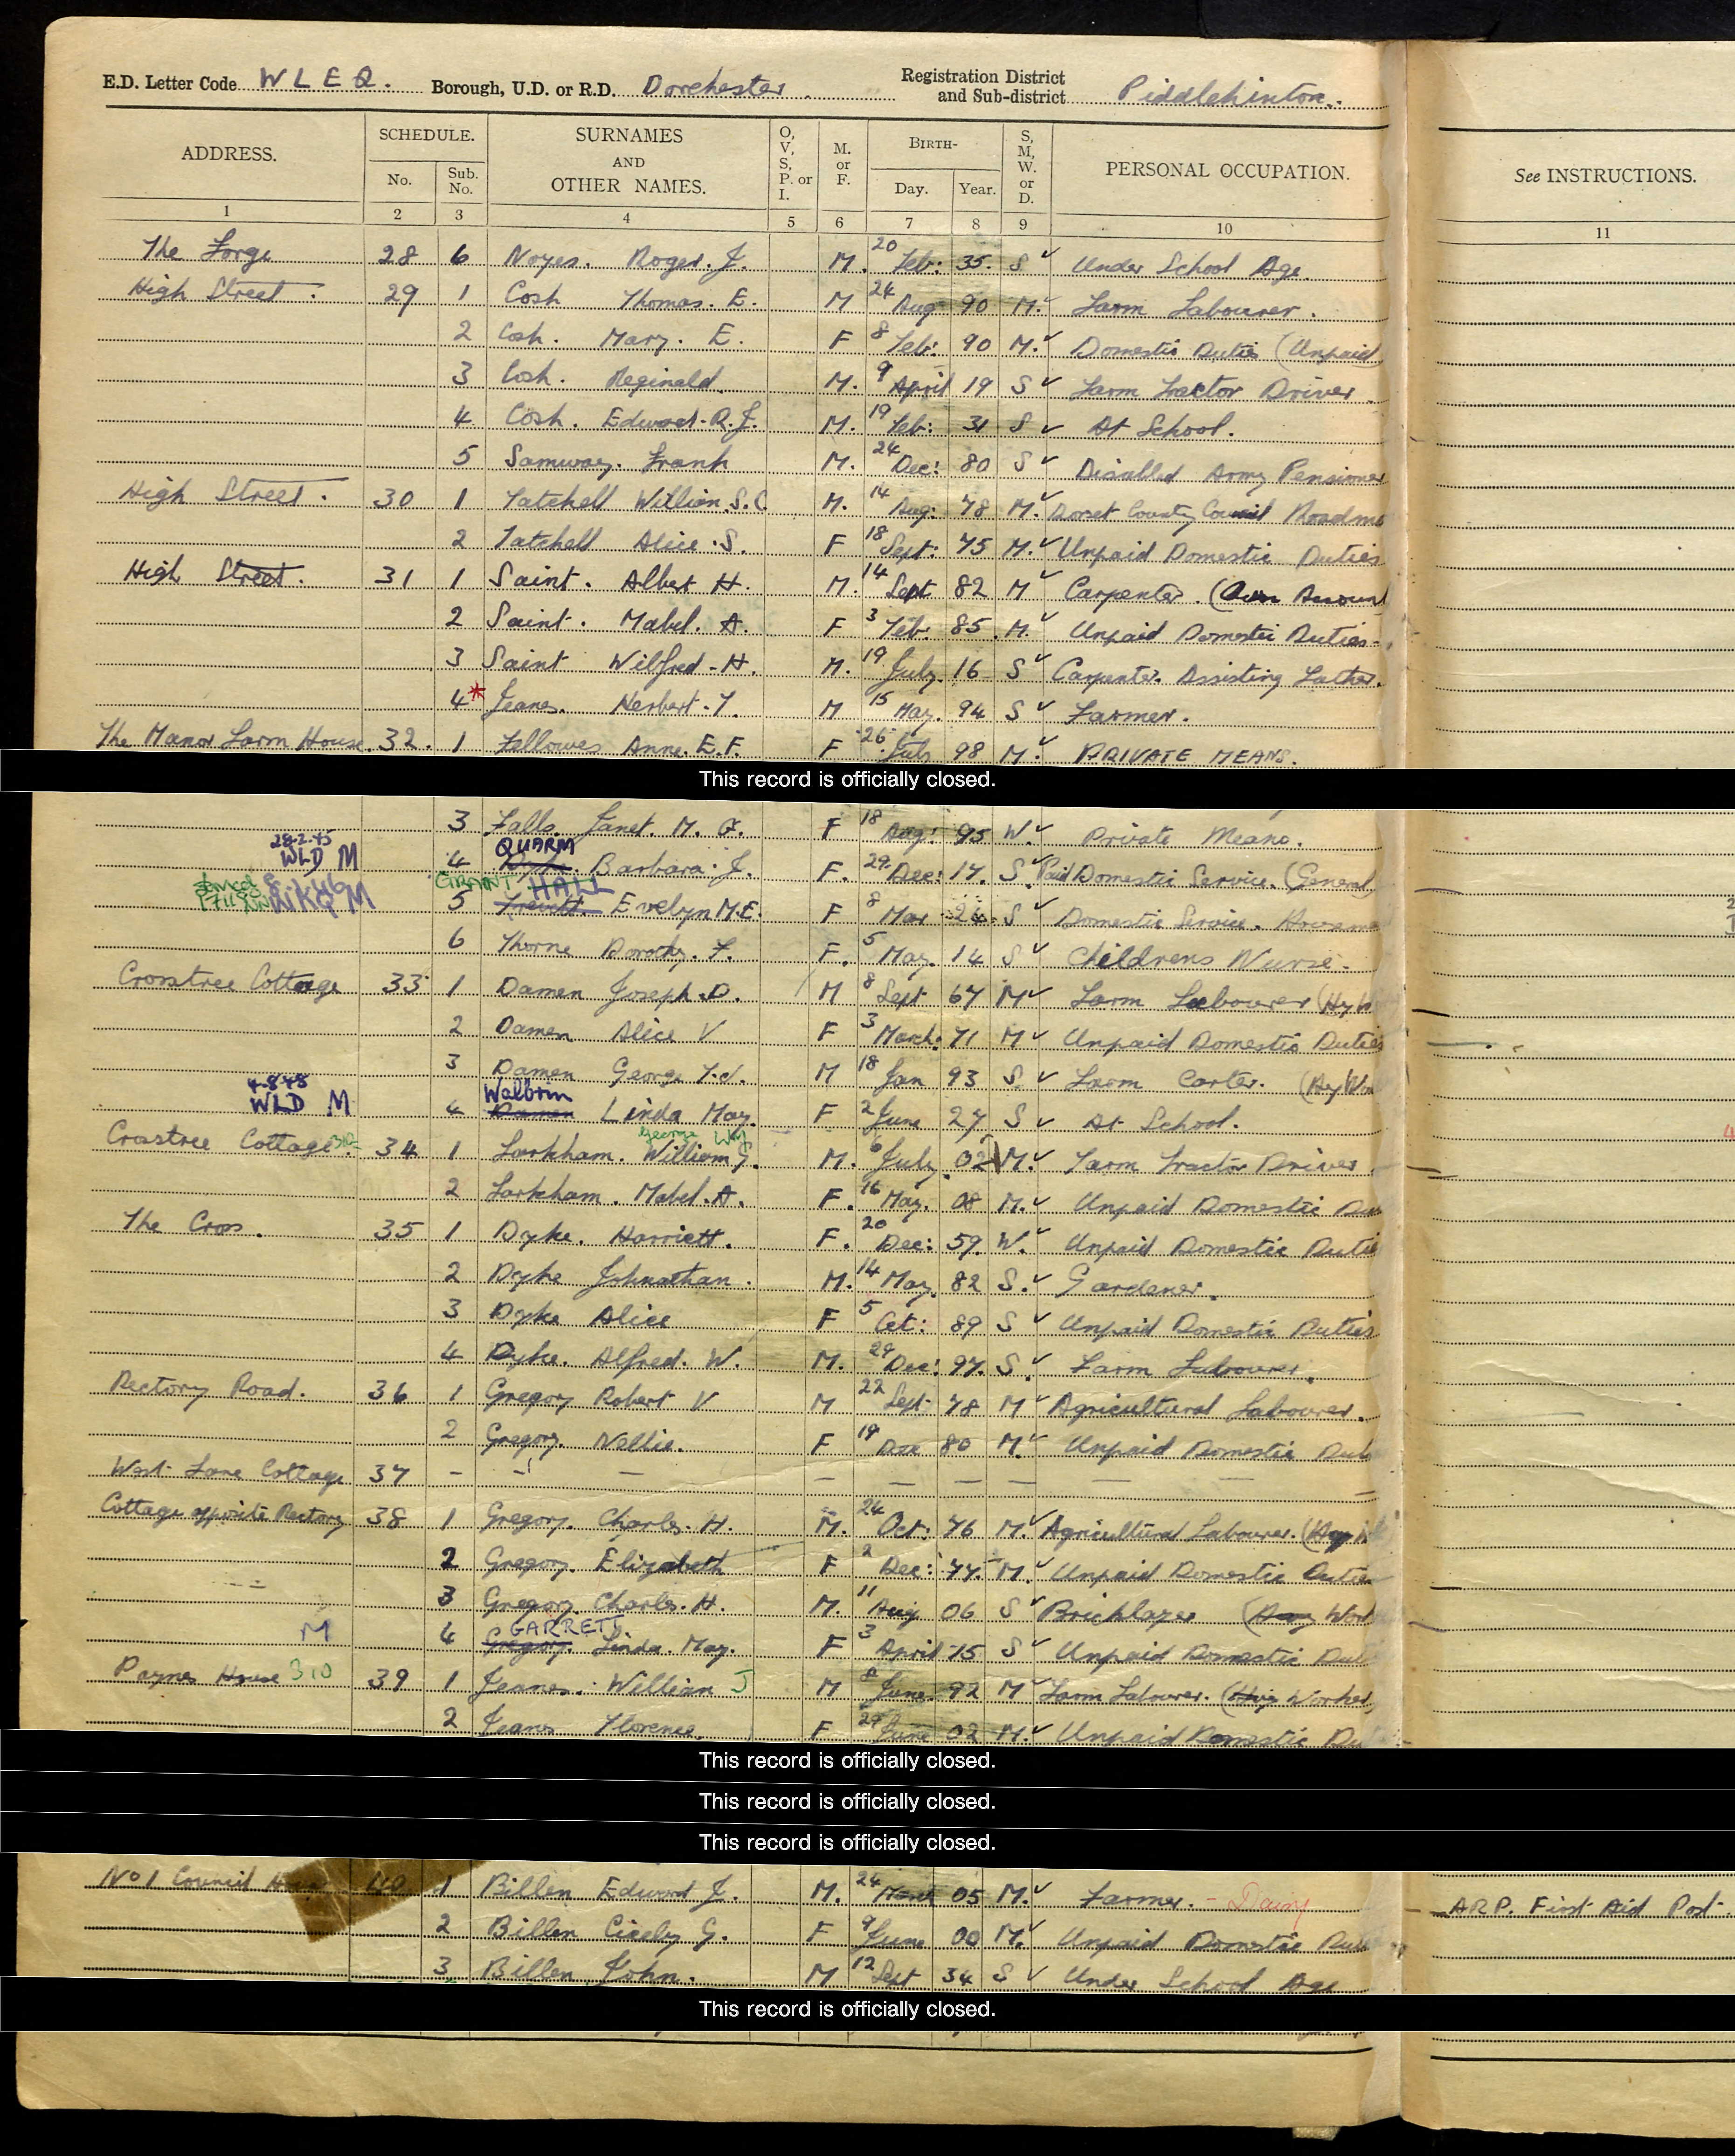 E.D. Letter Code W L E Q. Borough, U.D. or R.D. Dorchester. Registration District and Sub-district Piddlehinton.
ADDRESS. SCHEDULE. No. Sub. No. SURNAMES AND OTHER NAMES. O, V, S, P. or I. M. or F. BIRTH- Day. Year. S, M, W. or D. PERSONAL OCCUPATION. See INSTRUCTIONS.
1 2 3 4 5 6 7 8 9 10 11
The Forge 28 6 Noyes. Roger. J. M. 20 Feb: 35. S Under School Age
High Street. 29 1 Cosh Thomas. E. M 24 Aug 90 M. Farm Labourer.
2 Cosh. Mary. E. F 8 Feb: 90 M. Domestic Duties (Unpaid
3 Cosh. Reginald. M. 9 April 19 S Farm Tractor Driver.
4 Cosh. Edward. R. J. M. 19 Feb: 31 S At School.
5 Samway. Frank M. 24 Dec: 80 S Disabled Army Pensioner
High Street. 30 1 Tatchell William. S. C. M. 14 Aug: 78 M. Dorset County Council Roadma
2 Tatchell Alice. S. F 18 Sept: 75 M. Unpaid Domestic Duties
High Street. 31 1 Saint. Albert H. M. 14 Sept 82 M Carpenter. (Own Account
2 Saint. Mabel. A. F 3 Feb. 85. M. Unpaid Domestic Duties.
3 Saint Wilfred. H. M. 19 July. 16 S Carpenter. Assisting Father.
4* Jeanes. Herbert. T. M 15 May. 94 S Farmer.
The Manor Farm House. 32. 1 Fellowes Anne. E. F. F 26 July 98 M. PRIVATE MEANS.
This record is officially closed.
3 Falls. Janet. M. G. F 18 Aug: 95 W. Private Means.
28.2.45 WLD M QUARM
4 Barbara. J. F. 29 Dec: 17. S. Paid Domestic Service. (General
GRANT HALL
M 5 Evelyn M.E. F 8 Mar 24 S Domestic Service.
6 Thorne Dorothy. F. F. 5 May. 14 S Childrens Nurse.
Crosstree Cottage 33 1 Damen Joseph. D. M 8 Sept 67 M Farm Labourer
2 Damen Alice V F 3 March. 71 M Unpaid Domestic Duties
3 Damen George T. J. M 18 Jan 93 S. Farm Carter.
4.8.48 WLD M Walbrin
4 Damen Linda May. F 2 June 27 S At School.
George
Crosstree Cottage. 34 1 Larkham. William G. M. 6 July. 02 M. Farm Tractor Driver
2 Larkham. Mabel. A. F. 16 May. 08 M. Unpaid Domestic Du
The Cross. 35 1 Dyke. Harriett. F. 20 Dec: 59. W. Unpaid Domestic Dutie
2 Dyke Johnathan. M. 14 May. 82 S. Gardener.
3 Dyke Alice F 5 Oct: 89 S Unpaid Domestic Duties
4 Dyke. Alfred. W. M. 29 Dec: 97. S. Farm Labourer.
Rectory Road. 36 1 Gregory Robert V M 22 Sept. 78 M Agricultural Labourer.
2 Gregory. Nellie. F 19 80 M. Unpaid Domestic Dut
West Lane Cottage 37 - - - - - - -
Cottage opposite Rectory 38 1 Gregory. Charles. H. M. 24 Oct: 76 M. Agricultural Labourer.
2 Gregory. Elizabeth F 2 Dec: 77. M. Unpaid Domestic Duties
3 Gregory Charles. H. M. 11 Aug 06 S Bricklayer (Heavy Work
M GARRETT
4 Gregory. Linda. May. F 3 April 15 S Unpaid Domestic Duti
Paynes House 310 39 1 Jeanes. William J M 8 June. 92 M Farm Labourer. (Heavy Worker
2 Jeanes Florence. F 29 June 02 M. Unpaid Domestic Du
This record is officially closed.
This record is officially closed.
This record is officially closed.
No 1 Council 40 1 Billen Edward J. M. 24 March 05 M. Farmer. - Dairy ARP. First Aid Post.
2 Billen Cicely G. F 9 June 00 M. Unpaid Domestic Dut
3 Billen John. M 12 Sept 34 S Under School Age
This record is officially closed.